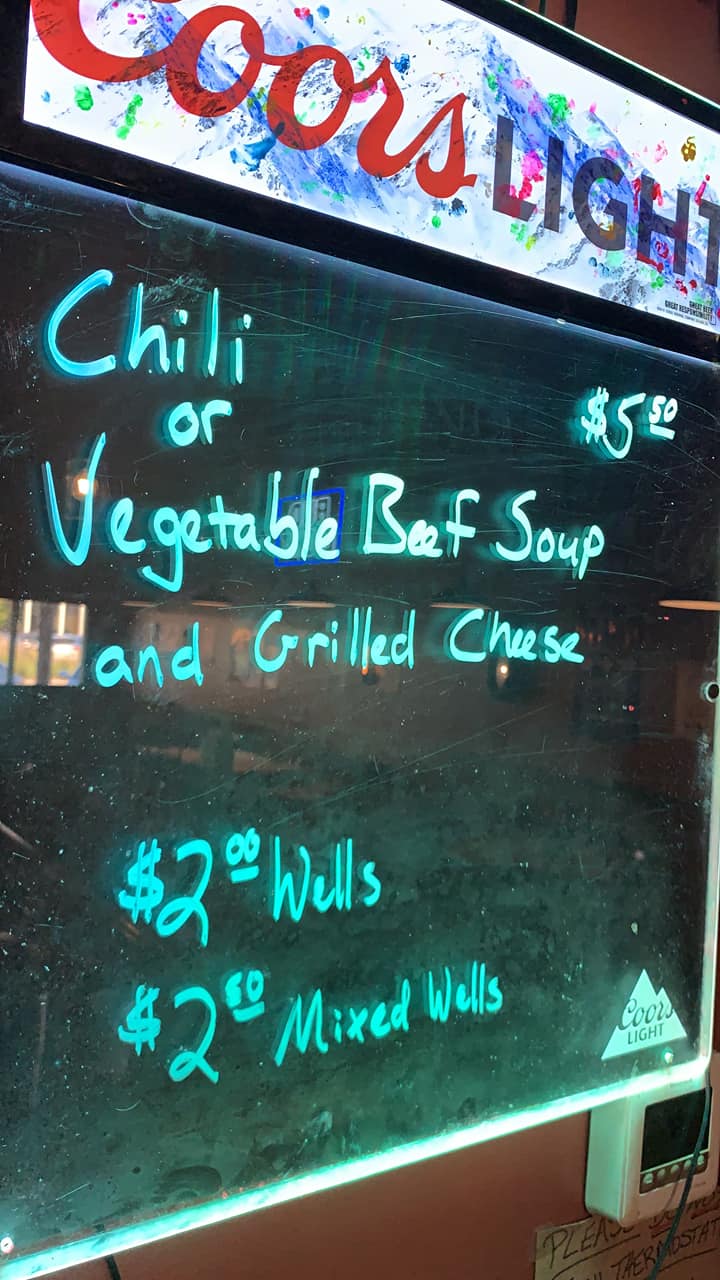 Coors LIGHT
GREAT BEER
GREAT RESPONSIBILITY
Chili
or
$5 50
Vegetable Beef Soup
and Grilled Cheese
$2 00 Wells
$2 50 Mixed Wells
Coors
LIGHT
PLEASE DO NOT
THERMOSTAT